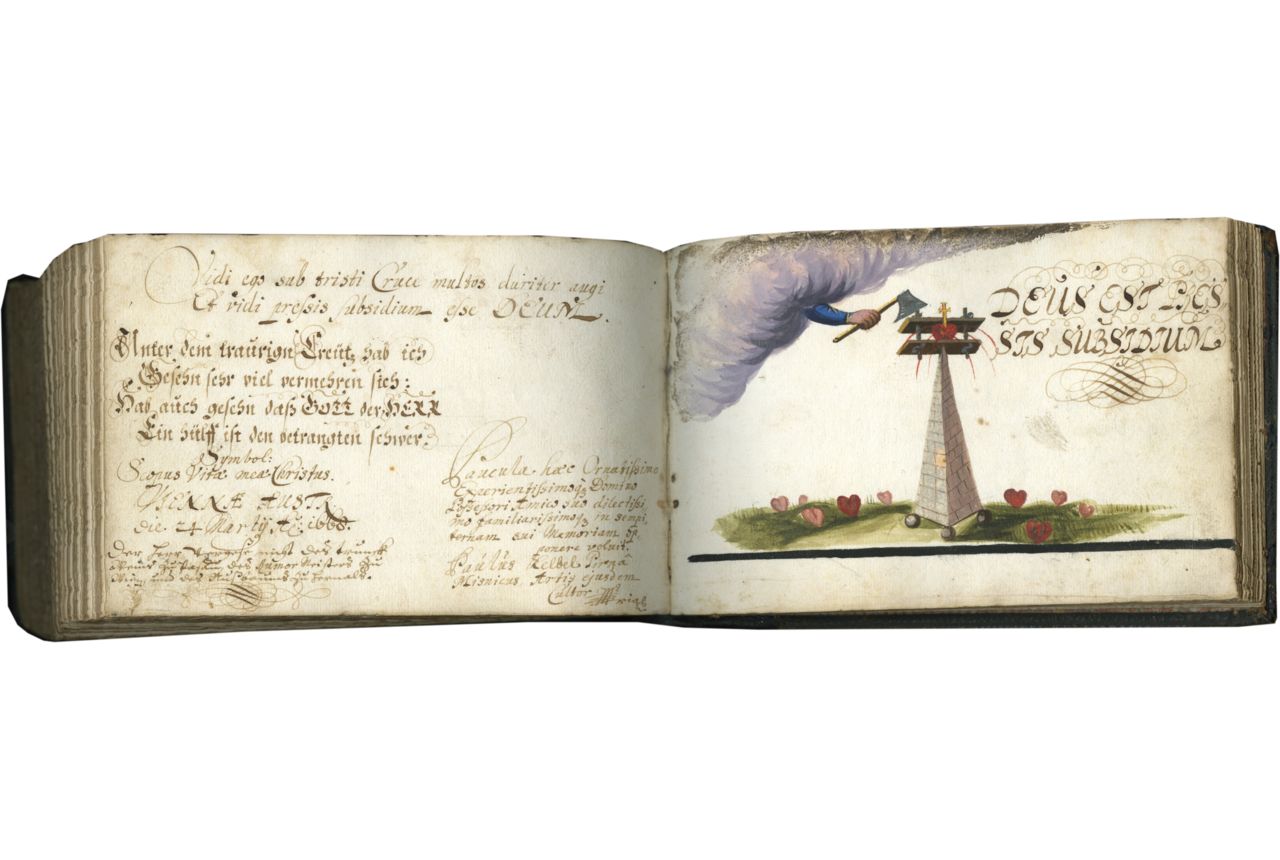 Vidi ego sub tristi Cruce multos duriter augi
Et vidi pressis subsidium esse DEUM.
Unter dem traurign Creutz hab ich
Gesehn sehr viel vermehren sich:
Hab auch gesehn daß GOTT der HERR
Ein hülff ist den betrangten schwer.
Symbol:
Scopus Vitæ meæ Christus.
VIENNÆ AUSTR
die 24 Martÿ Aõ:
Der Herr
des
Paucula hæc Ornatissimo
Experientissimoq; Domino
Possessori Amico suo dilectissi
mo familiarissimoq; in sempi
ternam sui Memoriam ap
ponere voluit.
Paulus Pirnâ
Misnicus, Artis ejusdem
Cultor
DEUS EST PRES
SIS SUBSIDIUM